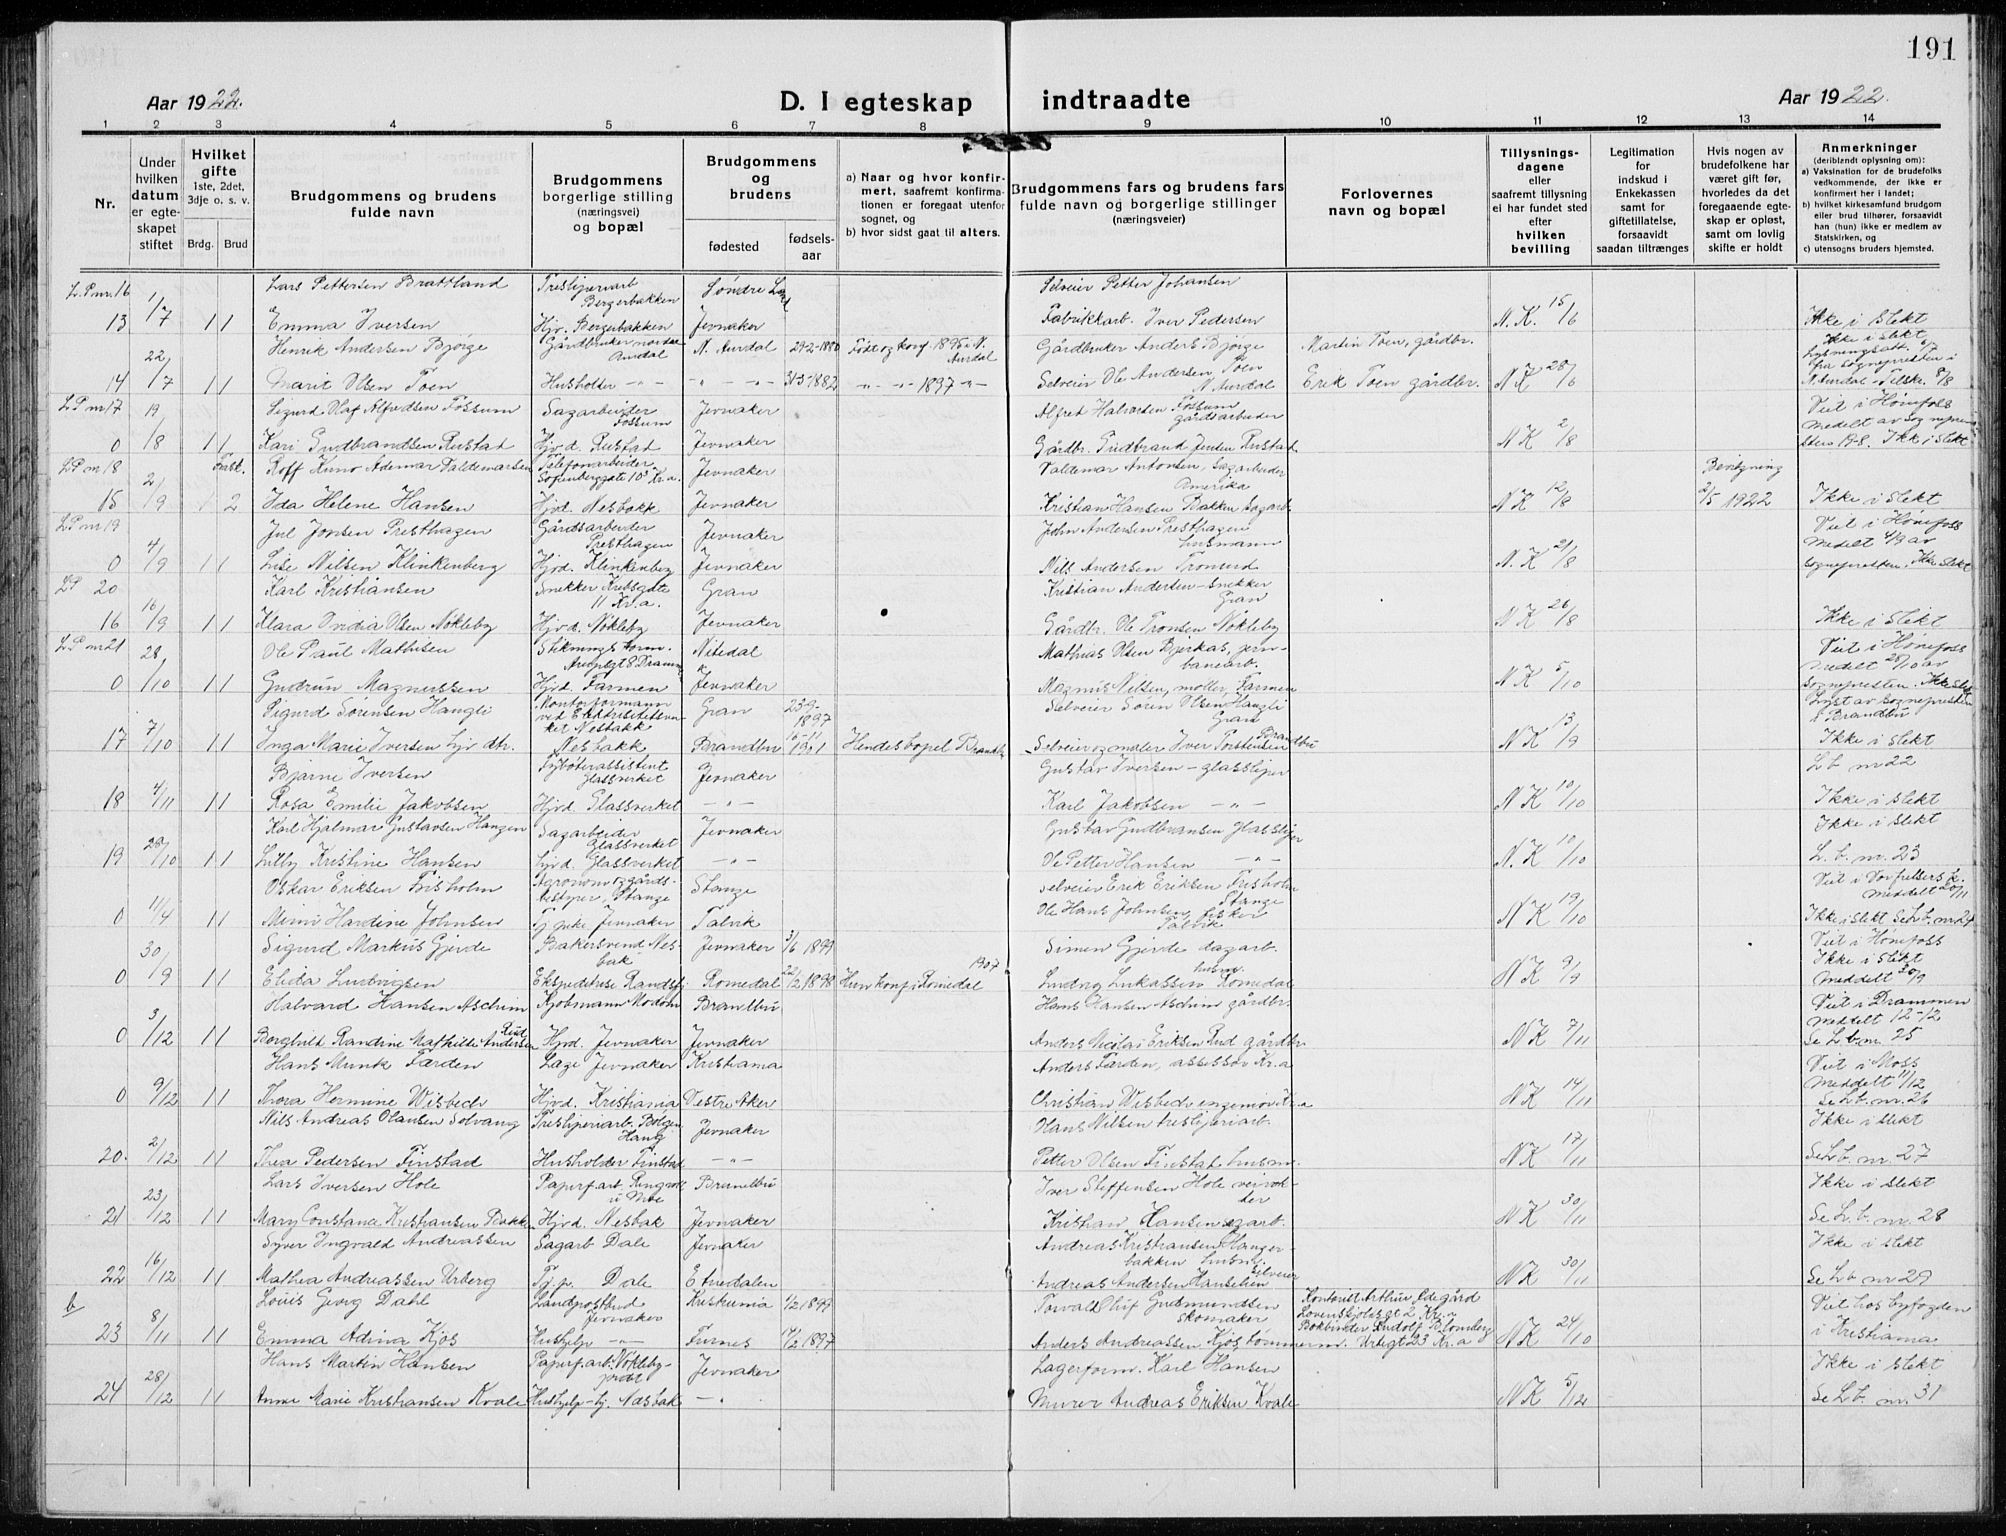 191
Aar 1922.
D. I egteskap indtraadte
Aar 1922.
1 2 3 4 5 6 7 8 9 10 11 12 13 14
Nr.
Under hvilken datum er egteskapet stiftet
Hvilket gifte 1ste, 2det, 3dje o. s. v.
Brdg. Brud
Brudgommens og brudens fulde navn
Brudgommens borgerlige stilling (næringsvei) og bopæl
Brudgommens og brudens
fødested
fødselsaar
a) Naar og hvor konfirmert, saafremt konfirmationen er foregaat utenfor sognet, og
b) hvor sidst gaat til alters.
Brudgommens fars og brudens fars fulde navn og borgerlige stillinger (næringsveier)
Forlovernes navn og bopæl
Tillysningsdagene eller saafremt tillysning ei har fundet sted efter hvilken bevilling
Legitimation for indskud i Enkekassen samt for giftetillatelse, forsaavidt saadan tiltrænges
Hvis nogen av brudefolkene har været gift før, hvorledes da det foregaaende egteskap er opløst, samt om lovlig skifte er holdt
Anmerkninger (deriblandt oplysning om):
a) Vaksination for de brudefolks vedkommende, der ikke er konfirmert her i landet;
b) hvilket kirkesamfund brudgom eller brud tilhører, forsaavidt han (hun) ikke er medlem av Statskirken, og
c) utensogns bruders hjemsted.
L.P nr. 16 Lars Pettersen Brattland Tresliperiarb Bergerbakken Søndre Land Selveier Petter Johansen
13 1/7 1 1 Emma Iversen Hjv. Bergerbakken Jevnaker Fabrikkarb. Iver Pedersen N. K. 15/6 Ikke i slekt
Henrik Andersen Bjørge Gårdbruker nordre Aurdal N. Aurdal 29-2-1880 Født og konf. 1895 i N. Aurdal Gårdbruker Anders Bjørge Martin Toen, gårdbr. Ikke i slekt
14 22/7 1 1 Marit Olsen Toen Husholder -"- -"- -"- 31-3-1882 -"- -"- 1897 -"- Selveier Ole Andersen Toen N. Aurdal Erik Toen gårdbr. N K 28/6 N. Aurdal
L.P nr 17 Sigurd Olaf Alfredsen Fossum Sagarbeider Fossum Jevnaker Alfred Halvorsen Fossum gårdsarbeider Viet i Hønefoss
0 19/8 1 1 Kari Gudbrandsen Rustad Hjvd. Rustad Jevnaker Gårdbr. Gudbrand Jensen Rustad N K 2/8 meddelt av sognepresten 19-8. Ikke i slekt
L P nr 18 Frask. Rolf Kuno Ademar Valdemarsen Telefonarbeider Sofienberggate 10 Kr.a. Jevnaker Valdemar Antonsen, Sagarbeider Amerika Bevilgning
15 2/9 2 Ida Helene Hansen Hjvd. Nesbakk Jevnaker Kristian Hansen Bakken Sagarb. N K 12/8 2/5 1922 Ikke i slekt
L P nr 19 Jul Jonsen Presthagen Gårdsarbeider Presthagen Jevnaker John Andersen Presthagen husmann Viet i Hønefoss
0 4/9 1 1 Lise Nilsen Klinkenberg Hjvd. Klinkenberg Jevnaker Nils Andersen Tronsrud N. K 21/8 meddelt 4/9 av sognepresten. Ikke slekt
L P 20 Karl Kristiansen Snekker Krebsgate 11 Kr.a. Gran Kristian Andersen - snekker Gran
16 16/9 1 1 Klara Ovidia Olsen Nøkleby Hjvd. Nøkleby Jevnaker Gårdbr. Ole Tronsen Nøkleby N K 26/8 Ikke i slekt
L.P nr 21 Ole Paul Mathisen Nitedal Mathias Olsen Bjerkås, jernbanearb. Viet i Hønefoss
0 28/10 1 1 Gudrun Magnussen Hjvd. Farmen Jevnaker Magnus Nilsen, møller, Farmen N K 5/10 meddelt 28/10 av sognepresten. Ikke slekt
Sigurd Sørensen Hangli Kontorformann ved Elektrisitetsverket Nesbakk Gran 23-9-1897 Selveier Søren Olsen Hangli Gran Lyst av sognepresten i Brandbu
17 7/10 1 1 Inga Marie Iversen Nesbakk Brandbu 16-11 1901 Hendes bopel Brandbu Selveier og maler Iver Torstensen Brandbu N K 13/9 Ikke i slekt
Bjarne Iversen Glassverket Jevnaker Gustav Iversen - glassliper L b. nr 22
18 4/11 1 1 Rosa Emilie Jakobsen Hjvd Glassverket -"- Karl Jakobsen -"- N K 10/10 Ikke i slekt
Karl Hjalmar Gustavsen Haugen Sagarbeider Glassverket Jevnaker Gustav Gudbransen Glassliper Ikke i slekt
19 28/10 1 1 Lilly Kristine Hansen Hjvd. Glassverket -"- Ole Petter Hansen -"- N. K 10/10 L. b. nr. 23
Oskar Eriksen Frisholm Agronom og gårdsbestyrer, Stange Stange Selveier Erik Eriksen Frisholm Stange Viet i Vor frelsers k. meddelt 20/11
0 11/4 1 1 Mimi Hardine Johnsen Tj pike Jevnaker Talvik Ole Hans Johnsen, fisker Talvik N K 19/10 Ikke i slekt Se L b. nr 24
Sigurd Markus Gjerde Bakersvend Nesbak Jevnaker 3/6 1899 Simen Gjerde dagarb. Viet i Hønefoss Ikke i slekt
0 30/9 1 1 Elida Ludvigsen Ekspeditrise Randsfj. Romedal 22/12 1898 Hun konf. i Romedal 1907 Ludvig Lukassen husm. Romedal N K 9/9 meddelt 30/9
Halvard Hansen Aschim Kjøbmann Modum Brandbu Hans Hansen Aschim gårdbr. Viet i Drammen meddelt 12-12
0 3/12 1 1 Borghild Randine Mathilde Andersen Rud Hjvd. Jevnaker Jevnaker Anders Nicolai Eriksen Rud gårdbr N K 7/11 Se L b. nr. 25
Hans Munk Færden Læge Jevnaker Kristiania Anders Færden, assessor Kr.a Viet i Moss meddelt 11/12
0 9/12 1 1 Thora Hermine Wisbech Hjvd. Kristiania Vestre Aker Christian Wisbech ingeniør Kr.a N K 14/11 Se L b. nr. 26
Nils Andreas Olausen Solvang Tresliperiarb. Bølgen Haug Jevnaker Hans Nilsen tresliperiarb. Ikke i slekt
20. 2/12 1 1 Thea Pedersen Finstad Husholder Finstad -"- Petter Olsen Finstad husm. N K 17/11 Se L b. nr. 27
Lars Iversen Hole Papirf.arb. Brandbu Iver Steffensen Hole veivokder Ikke i slekt
21 23/12 1 1 Mary Constance Kristiansen Bakken Hjvd. Nesbak Jevnaker Kristian Hansen sagarb. N K 30/11 Se L. b. nr. 28
Syver Ingvald Andreassen Sagarb Dale Jevnaker Andreas Kristiansen Haugerbakken husm. Ikke i slekt
22 16/12 1 1 Mathea Andreassen Urberg Tj.p. Dale Etnedalen Andreas Andersen selveier N K 30/11 Se L b nr 29
b Louis Georg Dahl Landpostbud Jevnaker Kristiania 1/2 1899 Torvald Gudmundsen skomaker Kontorist Arthur Edegård Lovenskjoldsgt 2 Kr.a Bokbinder Rudolf Blomberg Urtegt 23 Kr.a Viet hos byfogden
23 8/11 1 1 Emma Adina Kjos Hushjelp -"- Furnes 14/2 1897 Anders Andreassen Kjos tømmerm. N K 24/10 i Kristiania
Hans Martin Hansen Papirf.arb. Nøkleby- Jevnaker Lagerform. Karl Hansen Ikke i slekt
24 28/12 1 1 Anne Marie Kristiansen Kvale Hushjelp Næsbak -"- Murer Andreas Eriksen Kvale N K 5/12 Se L b. nr. 31